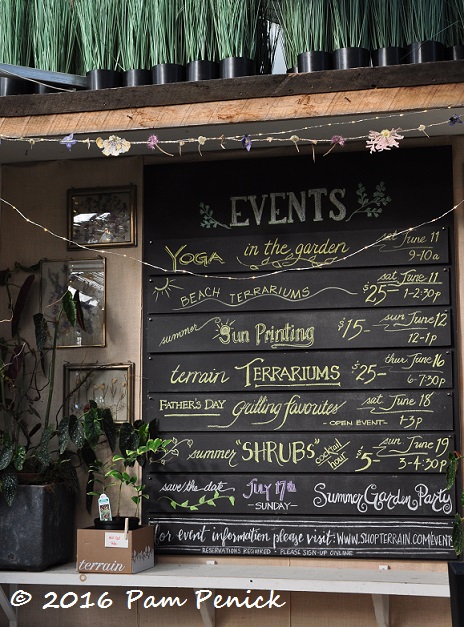 EVENTS
YOGA in the garden sat June 11 9-10a
BEACH TERRARIUMS $25- sat June 11 1-2:30p
summer Sun Printing $15- sun June 12 12-1p
terrain TERRARIUMS $25- thur June 16 6-7:30p
FATHER'S DAY Grilling favorites sat June 18 - OPEN EVENT -
summer "SHRUBS" cocktail hour $5- sun June 19 3-4:30p
save the date JULY 17th - SUNDAY - Summer Garden Party
for event information please visit: WWW.SHOPTERRAIN.COM/EVENTS
RESERVATIONS REQUIRED • PLEASE SIGN-UP ONLINE
terrain
© 2016 Pam Penick